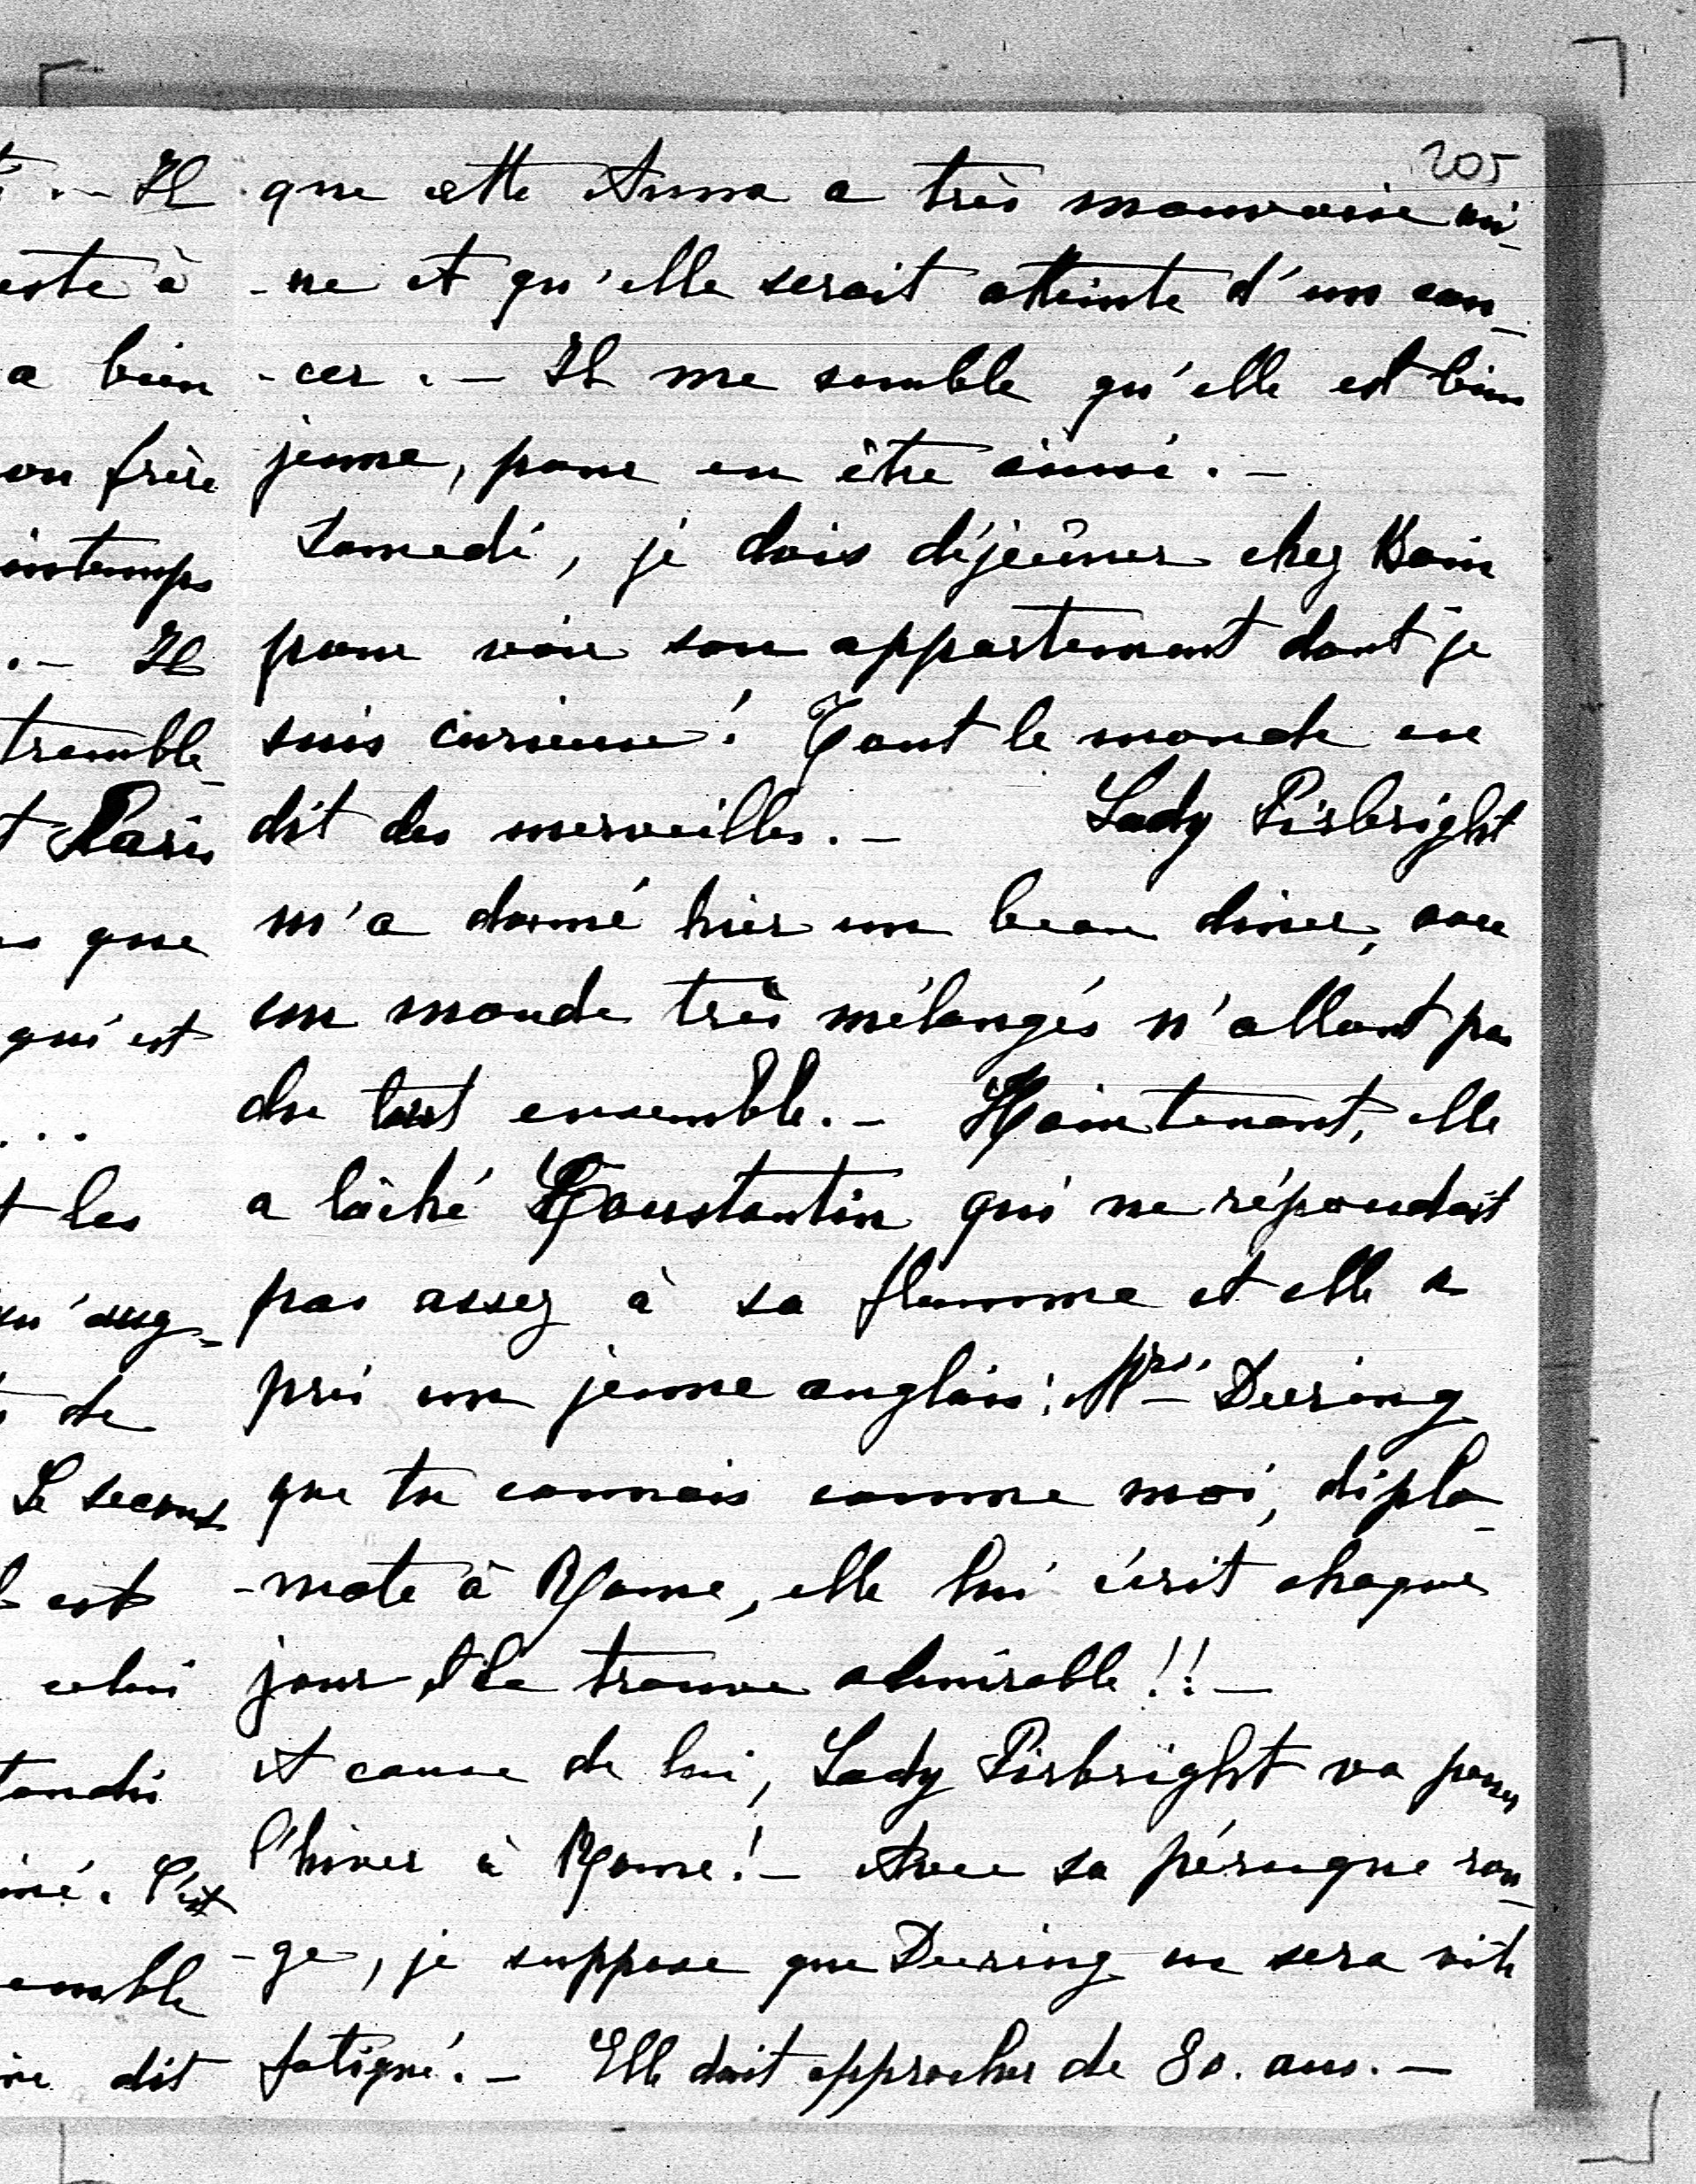 205
que cette Anna a très mauvaise mi-
-ne et qu'elle serait atteinte d'un can-
-cer. — Il me semble qu'elle est bien
jeune, pour en être ainsi. —
Samedi, je dois déjeûner chez
pour voir son appartement dont je
suis curieuse! Tout le monde en
dit des merveilles. — Lady Pirbright
m'a donné hier un beau diner, avec
un monde très mélangés n'allant pas
du tout ensemble. — Maintenant, elle
a lâché Constantin qui ne répondait
pas assez à sa flamme et elle a
pris un jeune anglais; Deering
que tu connais comme moi, diplo-
-mate à Rome, elle lui écrit chaque
jour, le trouve admirable!! —
A cause de lui, Lady Pirbright va passer
l'hiver à Rome! — Avec sa pérugue rou-
-ge, je suppose que Deering en sera vite
fatigué. — Elle doit approcher de 80. ans. —
Il
este à
a bien
on frère
intemps
. — Il
tremble-
t Paris
que
qui est
...
t les
de
Le second
est
celui
tandis
C'est
emble
dit